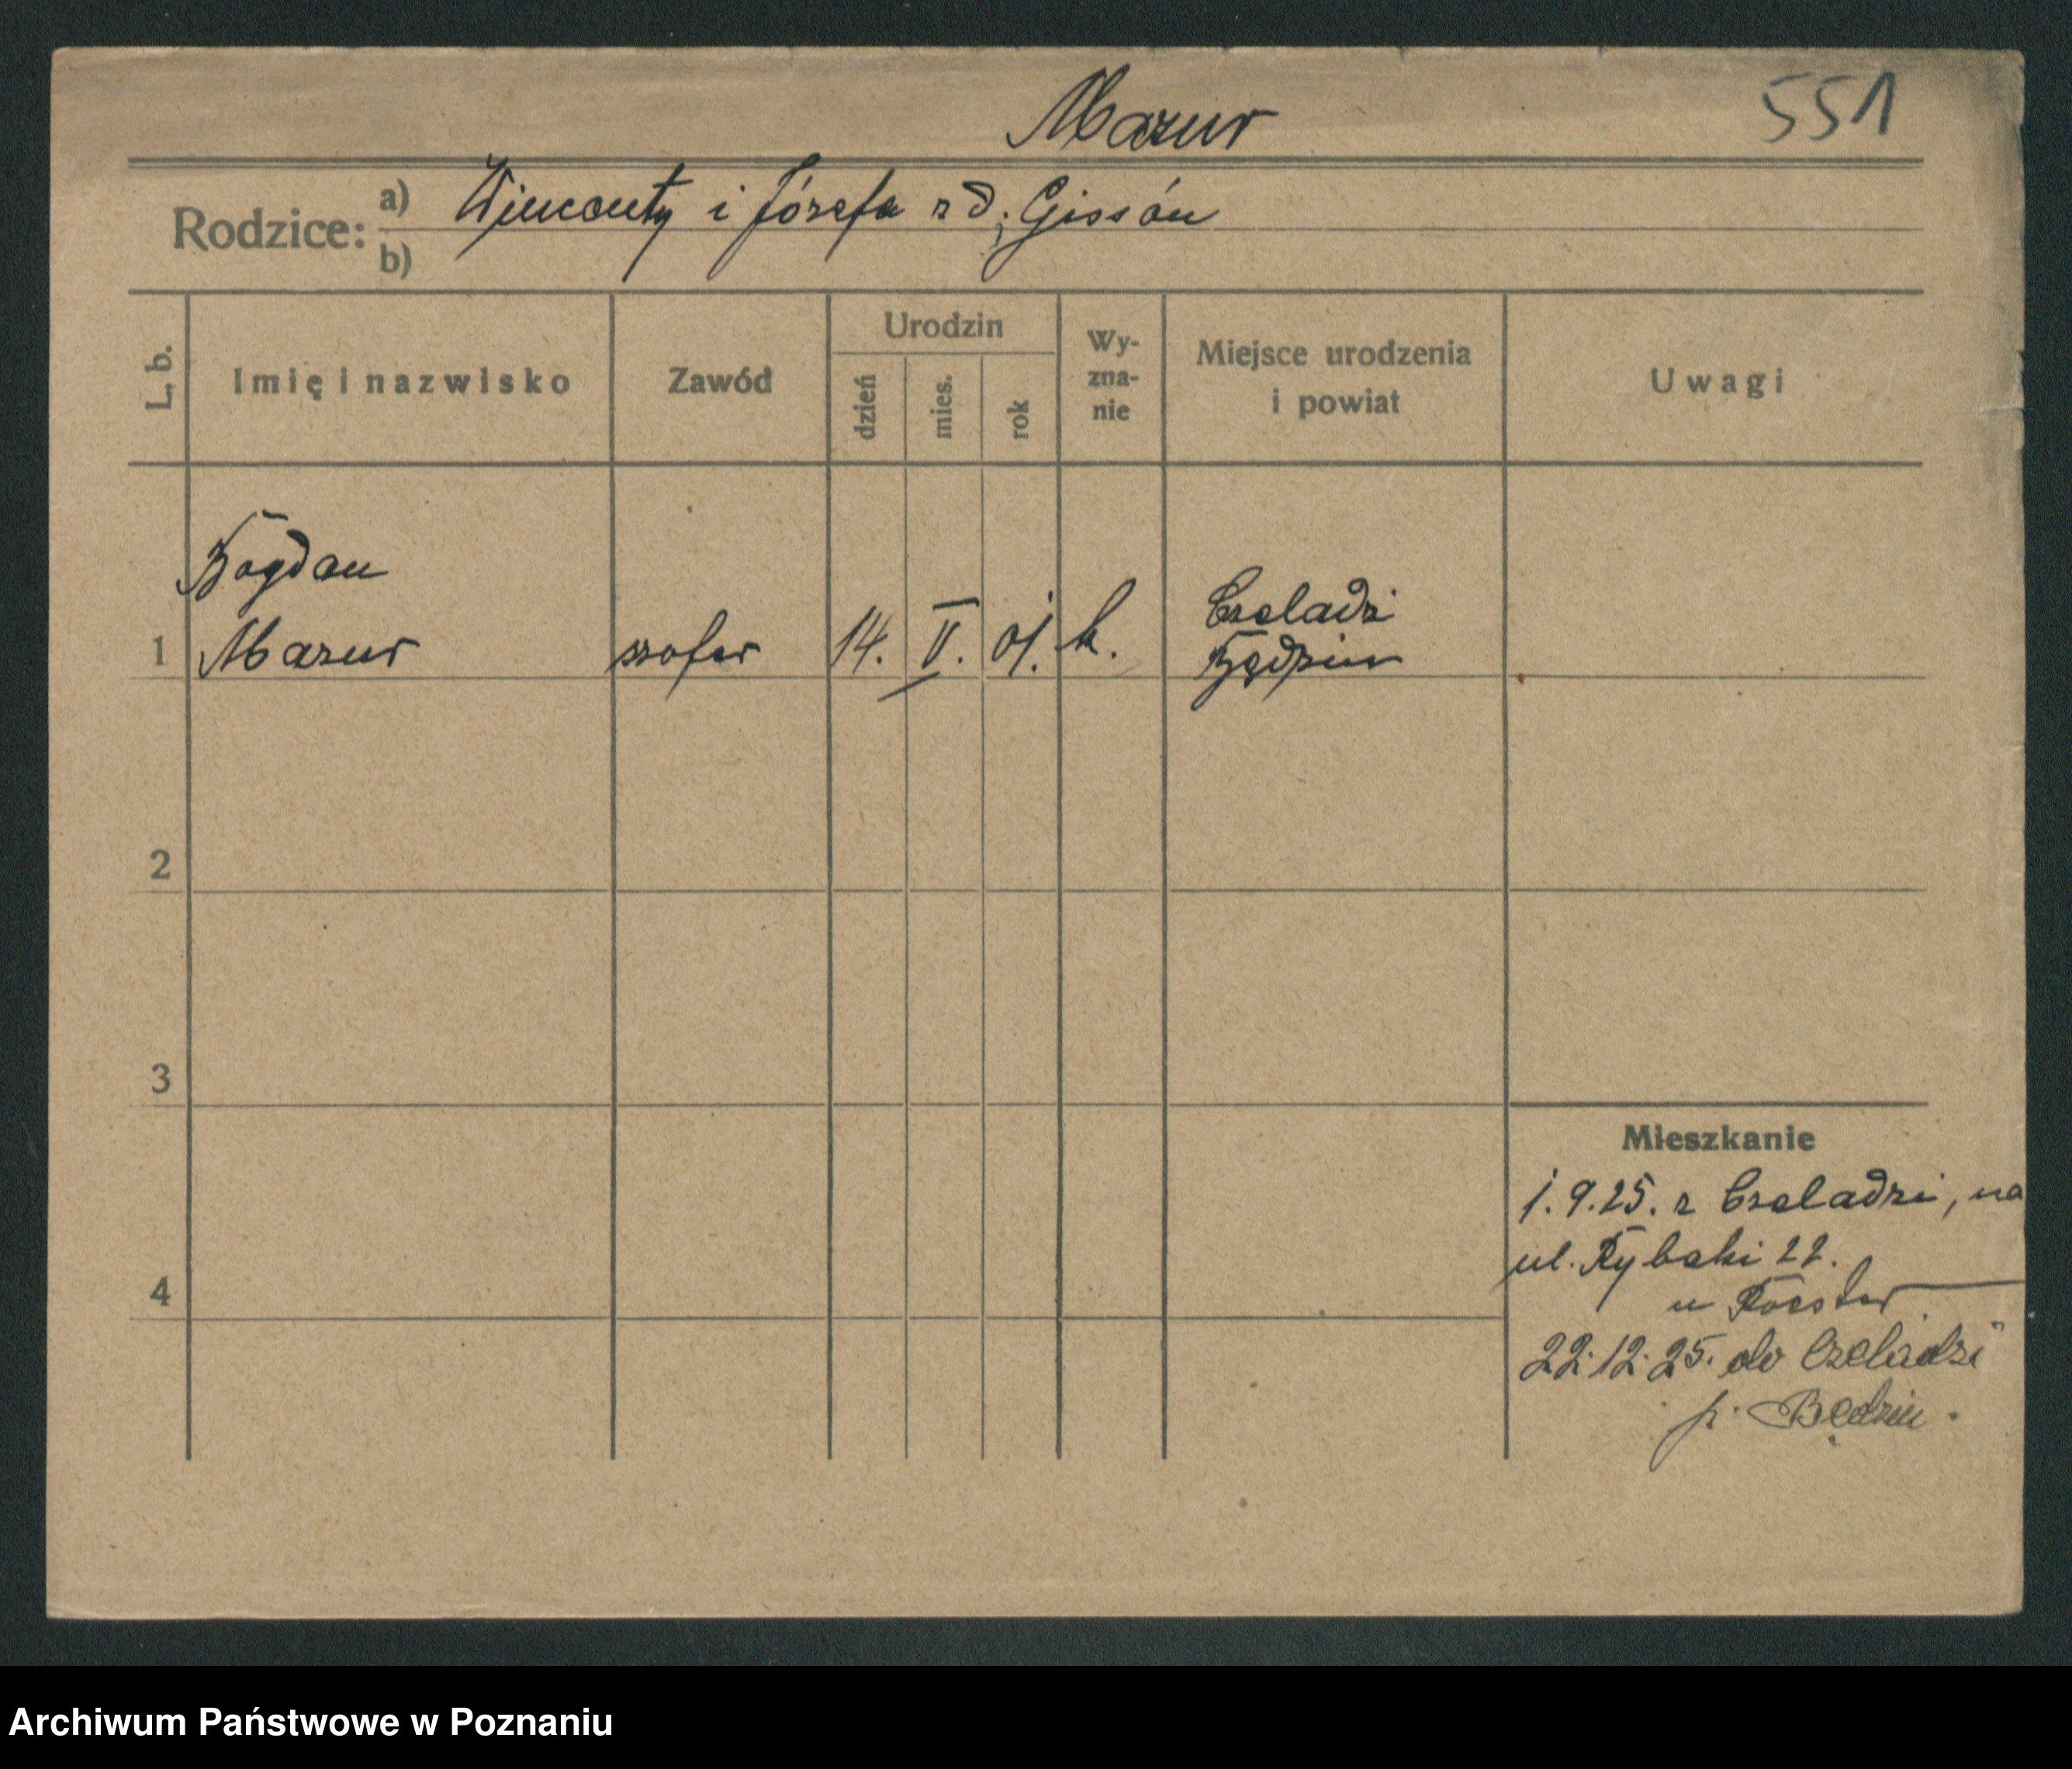 Mazur
551
Rodzice: a) Wincenty i Józefa zd. Gissón
b)
L. b.
Imię i nazwisko
Zawód
Urodzin
dzień
mies.
rok
Wy-
zna-
nie
Miejsce urodzenia
i powiat
Uwagi
Bogdan
1 Mazur szofer 14. V. 01. k. Czeladzi
Będzin
2
3
4
Mieszkanie
1.9.25. z Czeladzi, na
ul. Rybaki 22.
u
22.12.25. do Czeladzi
p. Będzin.
Archiwum Państwowe w Poznaniu